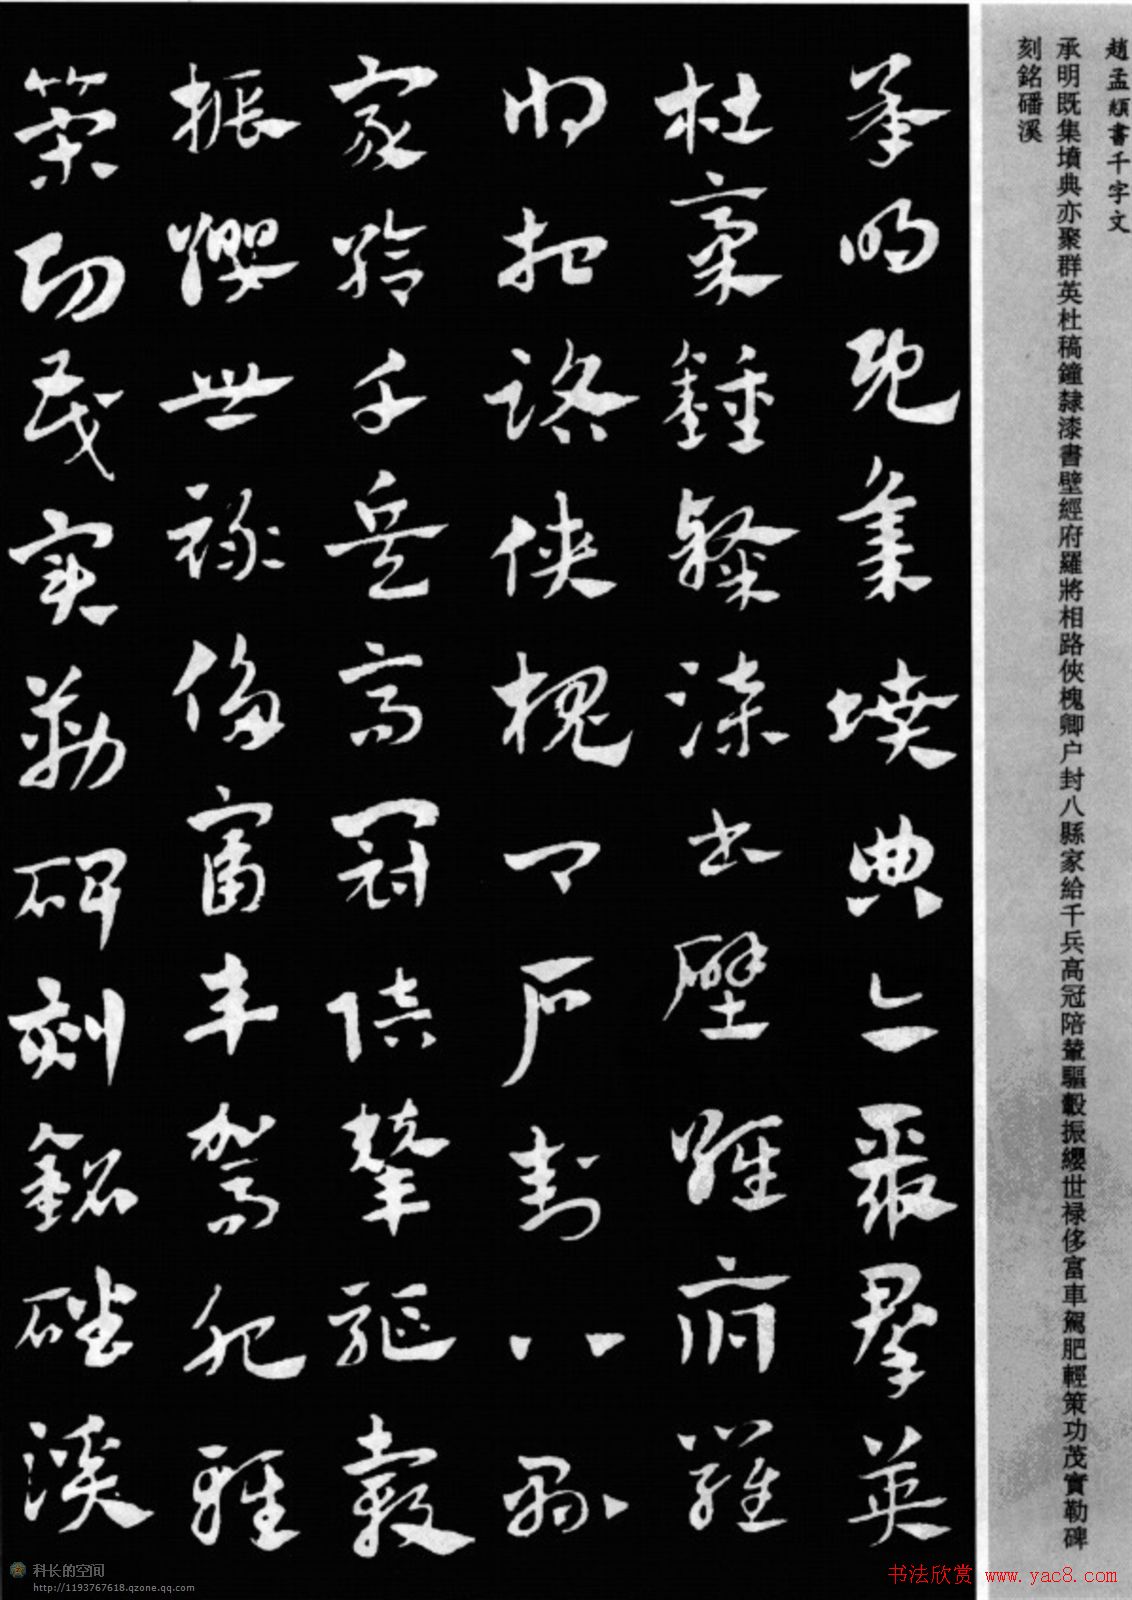 趙孟頫書千字文
承明既集墳典亦聚群英杜稿鐘隸漆書壁經府羅將相路俠槐卿户封八縣家給千兵高冠陪輦驅轂振纓世禄侈富車駕肥輕策功茂實勒碑
刻銘磻溪
承明既集墳典亦聚羣英
杜稾鍾隸漆書壁經府羅
將相路俠槐卿户封八縣
家給千兵高冠陪輦驅轂
振纓世禄侈富車駕肥輕
策功茂實勒碑刻銘磻溪
科长的空间
http://1193767618.qzone.qq.com
书法欣赏 www.yac8.com